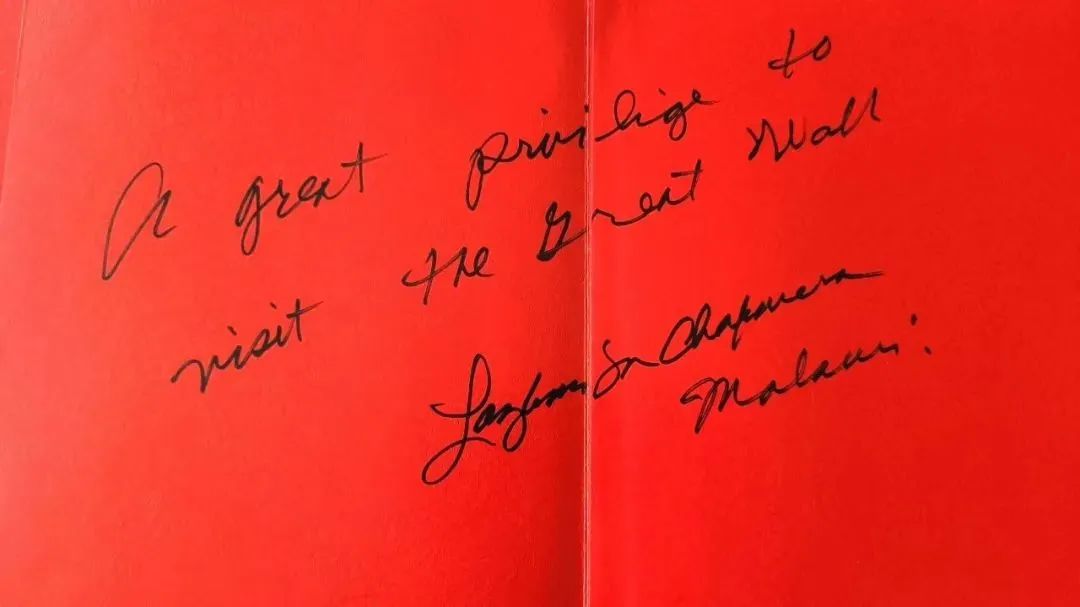 A great privilige to
visit the Great Wall
Chakwera
Malawi.